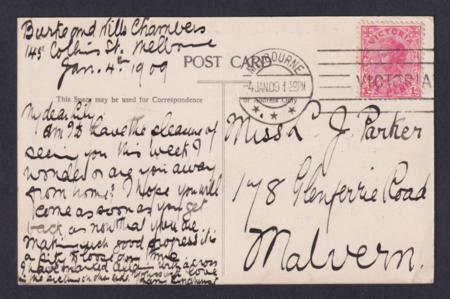 Burke and Wills Chambers
145 Collins St. Melbourne
Jan. 4th 1909
POST CARD
This Space may be used for Correspondence
Address Only
MELBOURNE
4 JAN 09
VICTORIA
VICTORIA
ONE PENNY
My dear Lily
Am I to have the pleasure of
seeing you this week? I
wonder or are you away
from home? I hope you will
come as soon as you get
back as now that you are
making such good progress it is
a pity to lose any time
I have marked
with a cross
Yours with love
Miss L J Parker
178 Glenferrie Road
Malvern.